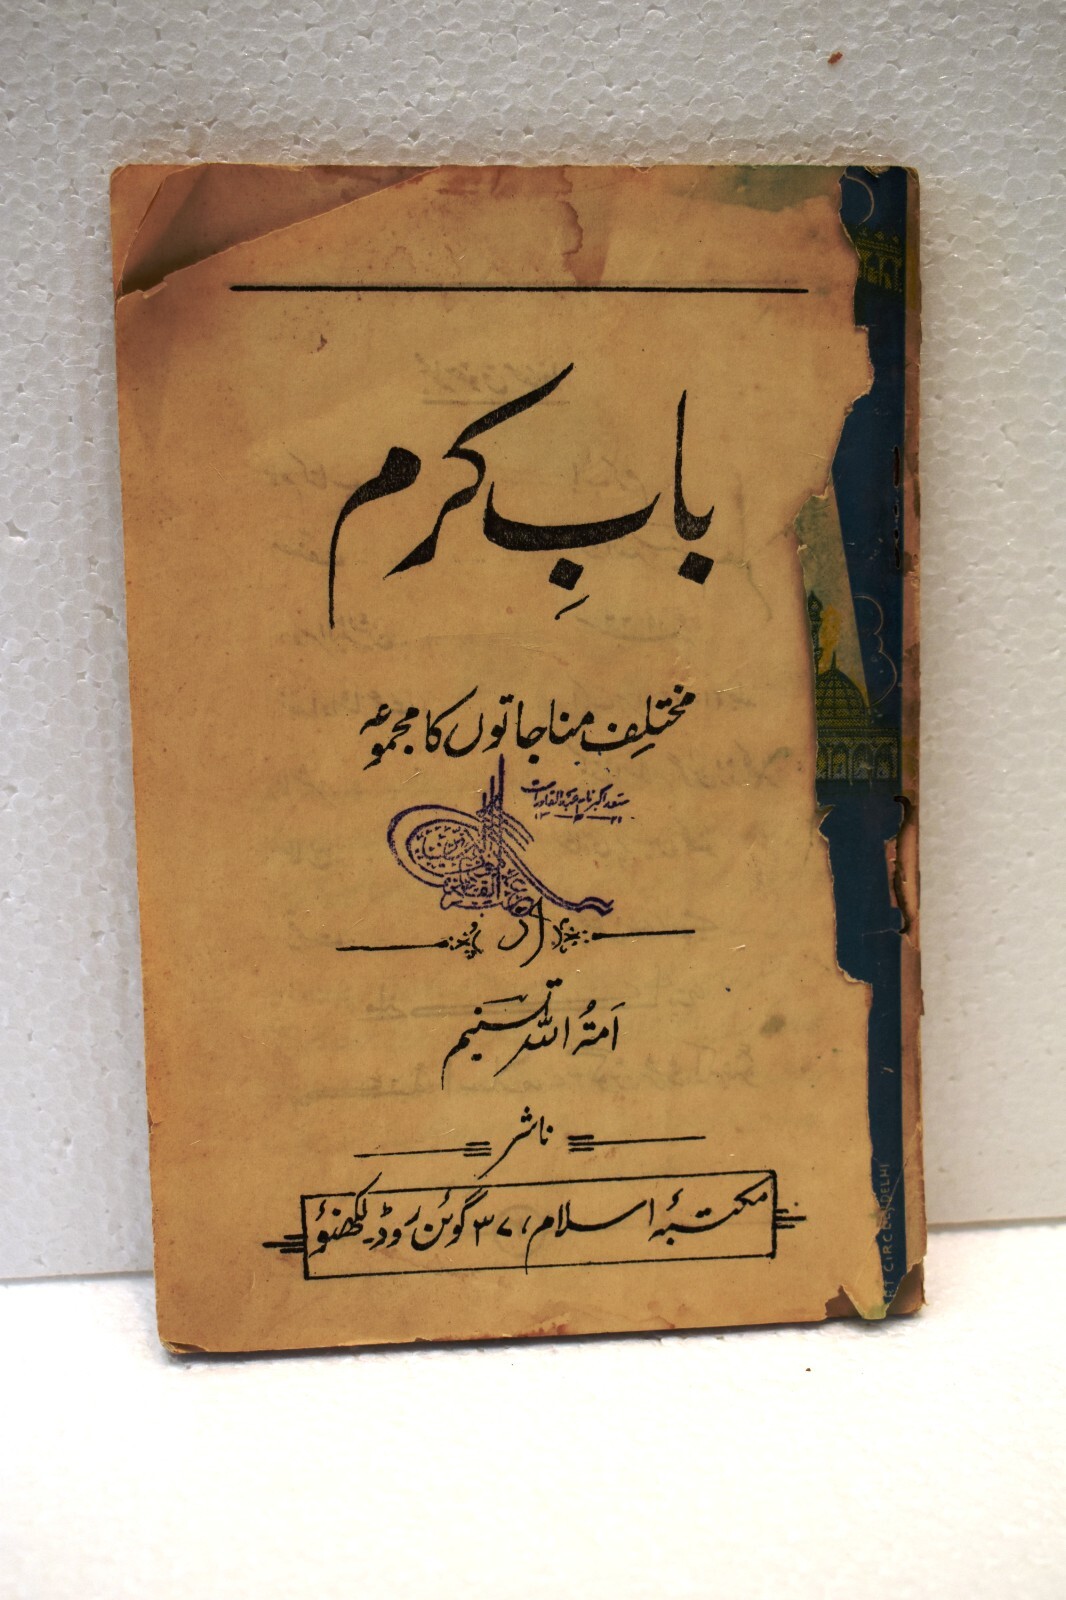 بابِ کرم
مختلف مناجاتوں کا مجموعہ
از
اَمۃُ اللہ تسنیم
ناشر
مکتبۂ اسلام، ۳۷ گوئن روڈ۔ لکھنؤ
CIRCUS, DELHI